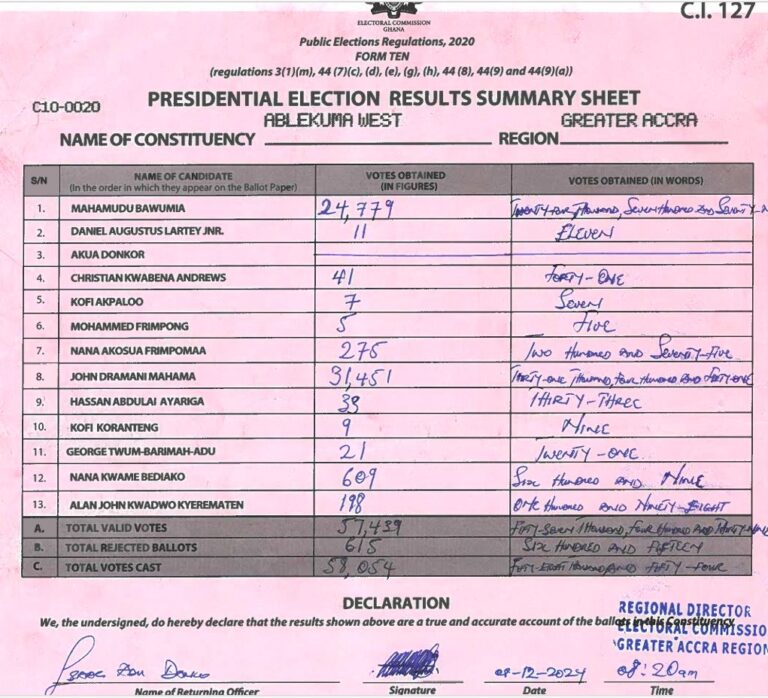 C.I. 127
ELECTORAL COMMISSION
GHANA
Public Elections Regulations, 2020
FORM TEN
(regulations 3(1)(m), 44 (7)(c), (d), (e), (g), (h), 44 (8), 44(9) and 44(9)(a))
C10-0020
PRESIDENTIAL ELECTION RESULTS SUMMARY SHEET
NAME OF CONSTITUENCY ABLEKUMA WEST REGION GREATER ACCRA
S/N NAME OF CANDIDATE (In the order in which they appear on the Ballot Paper) VOTES OBTAINED (IN FIGURES) VOTES OBTAINED (IN WORDS)
1. MAHAMUDU BAWUMIA 24,779 TWENTY-FOUR THOUSAND, SEVEN HUNDRED AND SEVENTY-N
2. DANIEL AUGUSTUS LARTEY JNR. 11 ELEVEN
3. AKUA DONKOR
4. CHRISTIAN KWABENA ANDREWS 41 FORTY-ONE
5. KOFI AKPALOO 7 SEVEN
6. MOHAMMED FRIMPONG 5 FIVE
7. NANA AKOSUA FRIMPOMAA 275 TWO HUNDRED AND SEVENTY-FIVE
8. JOHN DRAMANI MAHAMA 31,451 THIRTY-ONE THOUSAND, FOUR HUNDRED AND FIFTY-ONE
9. HASSAN ABDULAI AYARIGA 33 THIRTY-THREE
10. KOFI KORANTENG 9 NINE
11. GEORGE TWUM-BARIMAH-ADU 21 TWENTY-ONE
12. NANA KWAME BEDIAKO 609 SIX HUNDRED AND NINE
13. ALAN JOHN KWADWO KYEREMATEN 198 ONE HUNDRED AND NINETY-EIGHT
A. TOTAL VALID VOTES 57,439 FIFTY-SEVEN THOUSAND, FOUR HUNDRED AND THIRTY-NINE
B. TOTAL REJECTED BALLOTS 615 SIX HUNDRED AND FIFTEEN
C. TOTAL VOTES CAST 58,054 FIFTY-EIGHT THOUSAND AND FIFTY-FOUR
DECLARATION
We, the undersigned, do hereby declare that the results shown above are a true and accurate account of the ballots in this Constituency
REGIONAL DIRECTOR
ELECTORAL COMMISSIO
GREATER ACCRA REGION
08-12-2024 08:20am
Name of Returning Officer Signature Date Time